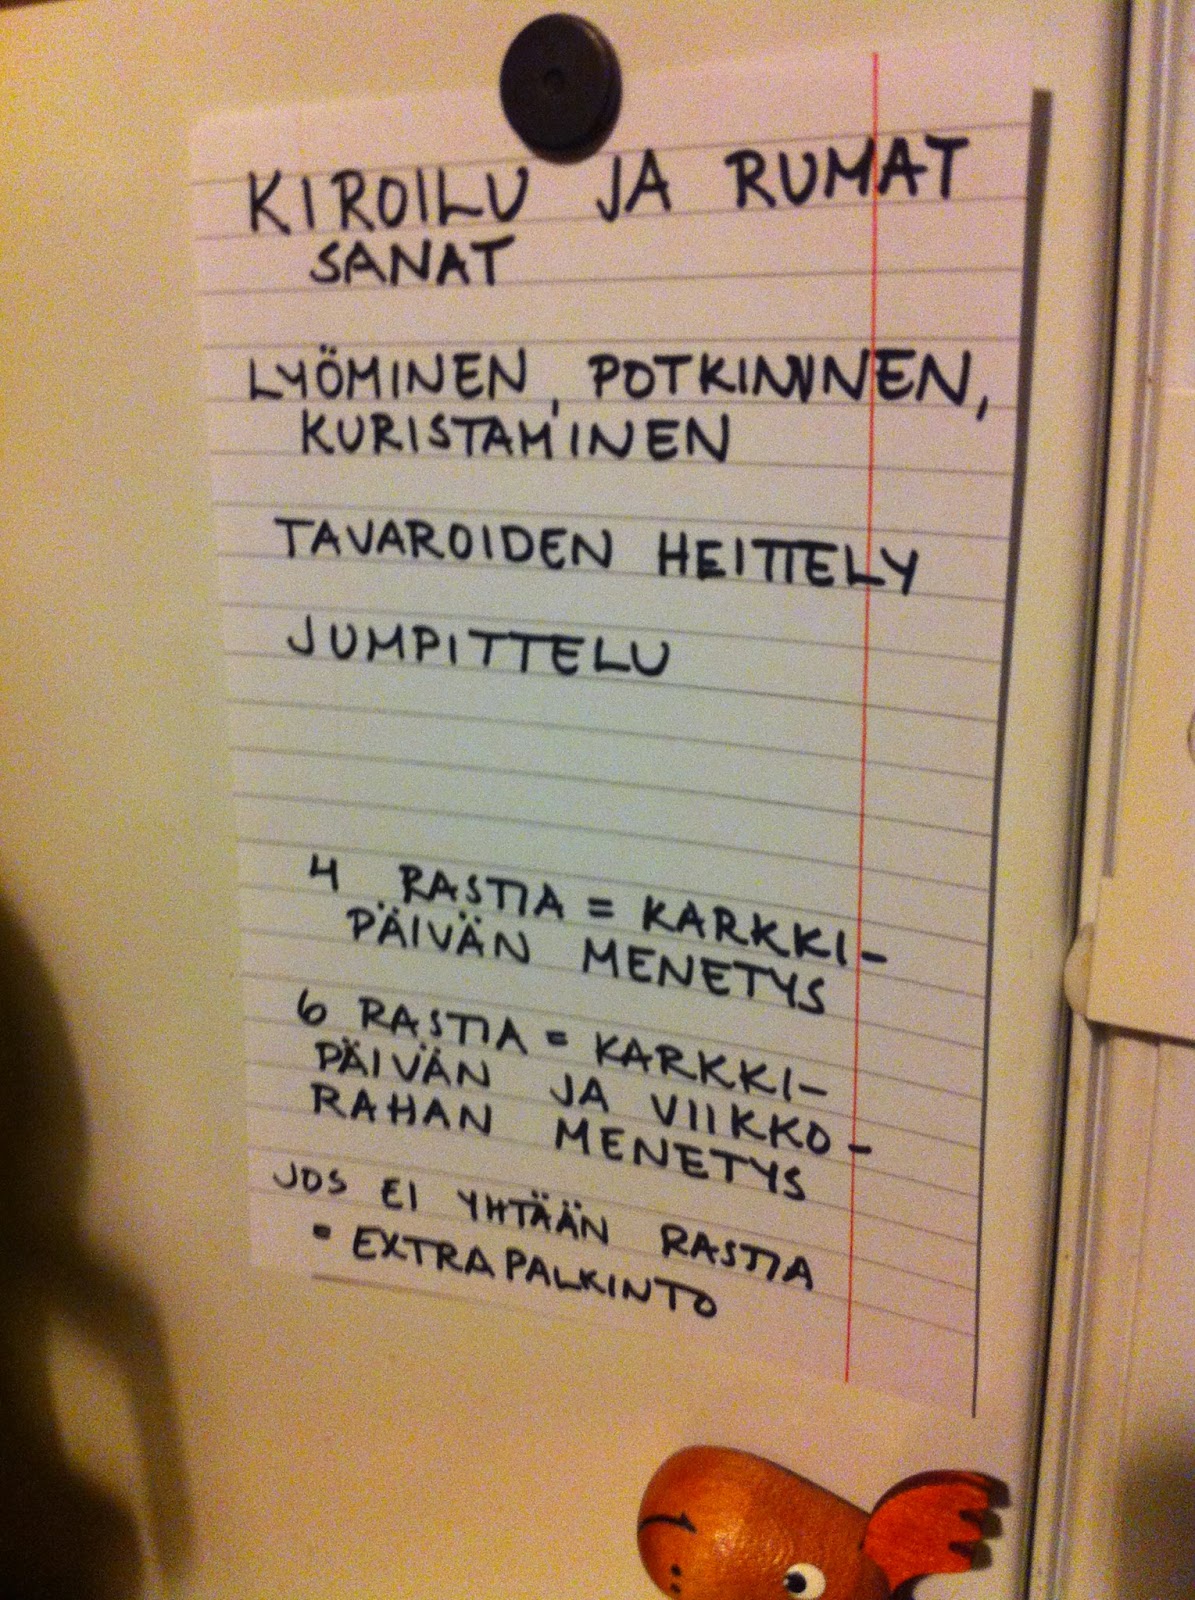 KIROILU JA RUMAT
SANAT
LYÖMINEN, POTKIMINEN,
KURISTAMINEN
TAVAROIDEN HEITTELY
JUMPITTELU
4 RASTIA = KARKKI-
PÄIVÄN MENETYS
6 RASTIA = KARKKI-
PÄIVÄN JA VIIKKO-
RAHAN MENETYS
JOS EI YHTÄÄN RASTIA
= EXTRAPALKINTO